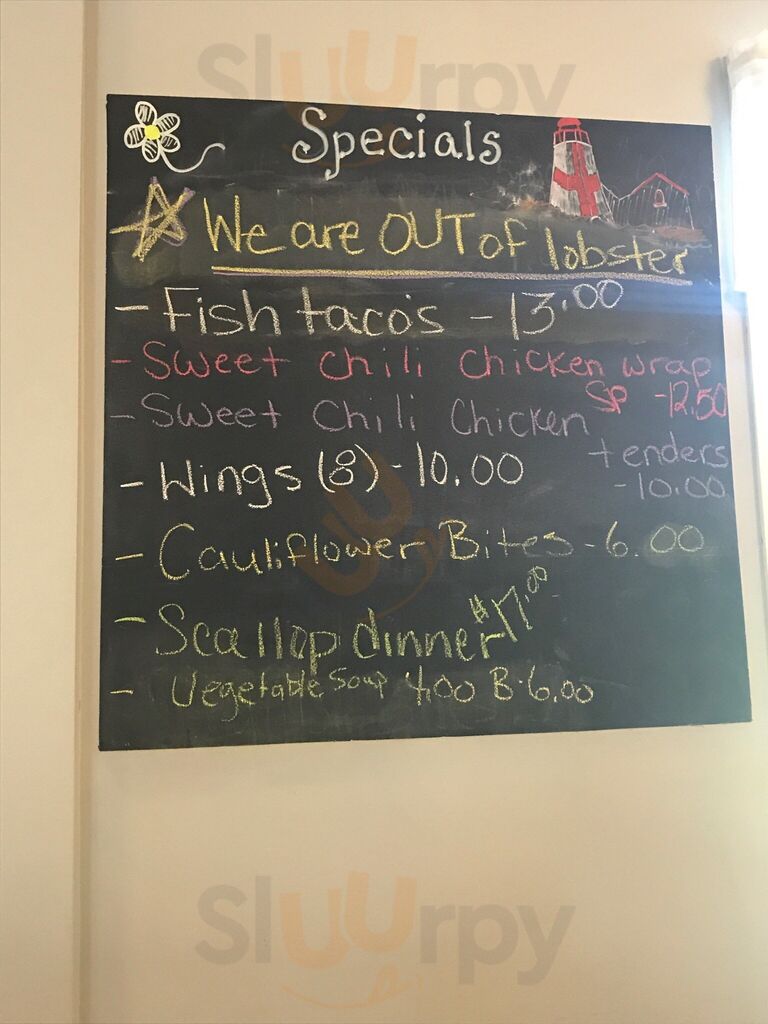 Sluurpy
Specials
We are OUT of lobster
- Fish tacos - 13.00
- Sweet chili chicken wrap
SP - 12.50
- Sweet Chili Chicken
tenders
- 10.00
- Wings (8) - 10.00
- Cauliflower Bites - 6.00
- Scallop dinner $17.00
- Vegetable Soup 4.00 B-6.00
Sluurpy